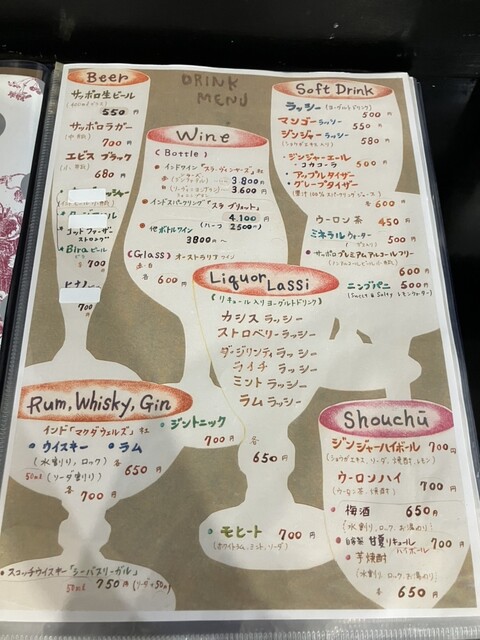 DRINK
MENU
Beer
サッポロ生ビール
550
サッポロラガー
700円
エビス ブラック
680円
ゴッドファーザー
ストロング
Biraビール
各 700円
ヒナノ
700
Wine
(Bottle)
3.800円
3.600円
4.100
(ハーフ 2500-)
他ボトルワイン
3800〜
(Glass) オーストラリアワイン
赤 白
各 600円
Soft Drink
ラッシー (ヨーグルトドリンク)
500
マンゴーラッシー 550円
ジンジャーラッシー 580
・ジンジャーエール
・コカコーラ 500
・アップルタイザー
・グレープタイザー
各 600円
ウーロン茶 450
ミネラルウォーター
500
サッポロプレミアムアルコールフリー
600円
ニンブパニ 500
(Sweet & Salty レモンウォーター)
Liquor Lassi
(リキュール入りヨーグルトドリンク)
カシス ラッシー
ストロベリーラッシー
ダージリンティラッシー
ライチ ラッシー
ミントラッシー
ラムラッシー
各
650円
・モヒート 700円
(ホワイトラム、ミント、ソーダ)
Rum, Whisky, Gin
インド「マクダウェルズ」社
・ウイスキー ・ラム
(水割り、ロック) 各 650円
50ml (ソーダ割り)
各 700円
・ジントニック
700円
・スコッチウイスキー「シーバスリーガル」
50ml 750円 (ソーダ+50円)
Shouchū
ジンジャーハイボール 700円
(ショウガエキス、ソーダ、焼酎、レモン)
ウーロンハイ 700
(ウーロン茶、焼酎)
・梅酒 650円
(水割り、ロック、お湯わり)
甘夏リキュール
ハイボール 700
・芋焼酎
(水割り、ロック、お湯わり)
各 650円